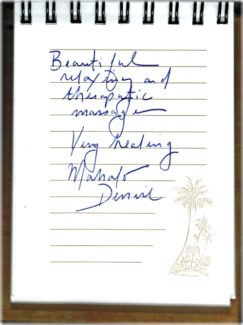 Beautiful
relaxing and
therapeutic
massage
Very healing
Mahalo